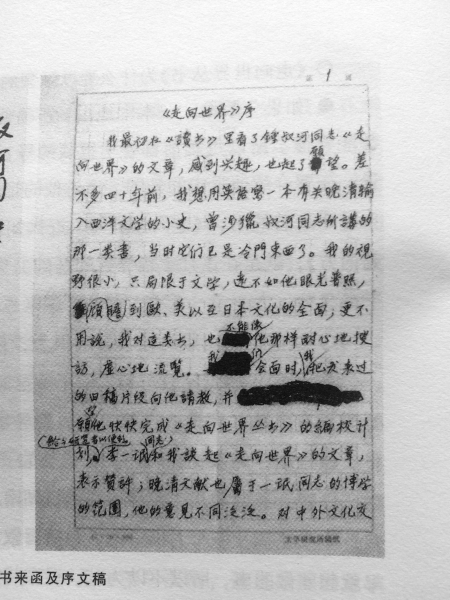 第 1 页
《走向世界》序
我最初在《读书》里看了锺叔河同志《走
向世界》的文章,感到兴趣,也起了愿望。差
不多四十年前,我想用英语写一本有关晚清输
入西洋文学的小史,曾涉猎叔河同志所講的
那一类書,当时它们已是冷門东西了。我的视
野很小,只局限于文学,远不如他眼光普照,
顧瞻到歐、美以至日本文化的全面;更不
用說,我对这类书,也不能像他那样耐心地搜
訪,虚心地流覽。我们会面时,我把
的旧稿片段向他請教,并
他快快完成《走向世界丛书》的编校计
划。李一氓同志和我談起《走向世界》的文章,
表示贊許;晚清文献也属于一氓同志的博学
的范围,他的意见不同泛泛。对中外文化交
文学研究所稿纸
书来函及序文稿